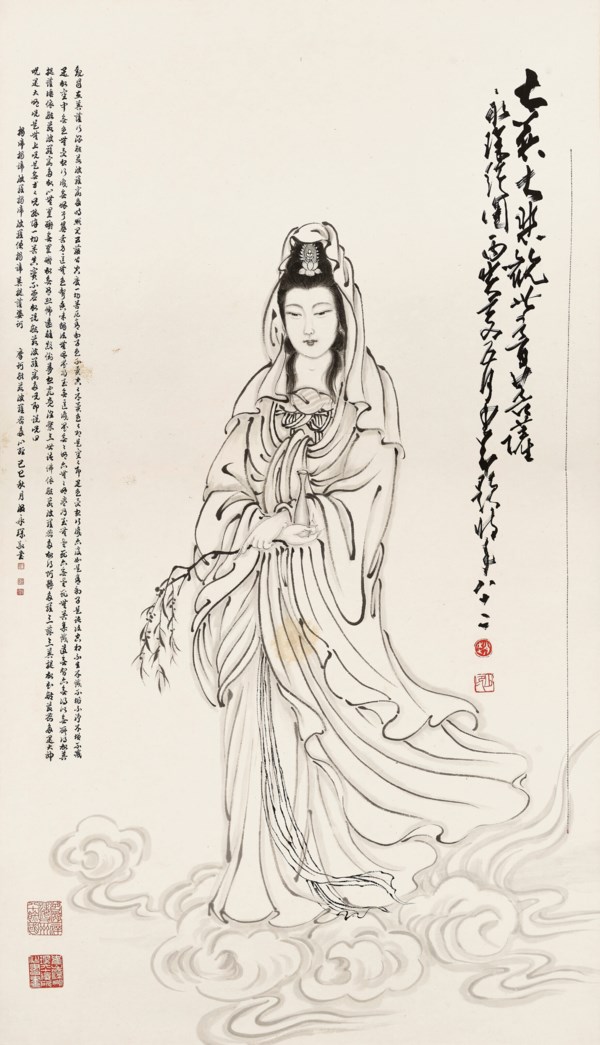 大慈大悲觀世音菩薩
永琛作圖丙寅夏五月少昂題時年八十二
觀自在菩薩行深般若波羅蜜多時照見五蘊皆空度一切苦厄舍利子色不異空々不異色々即是空々即是色受想行識亦復如是舍利子是諸法空相不生不滅不垢不淨不增不減
是故空中無色無受想行識無眼耳鼻舌身意無色聲香味觸法無眼界乃至無意識界無々明亦無々明盡乃至無老死亦無老死盡無苦集滅道無智亦無得以無所得故菩
提薩埵依般若波羅蜜多故心無罣礙無罣礙故無有恐怖遠離顛倒夢想究竟涅槃三世諸佛依般若波羅蜜多故得阿耨多羅三藐三菩提故知般若波羅蜜多是大神
咒是大明咒是無上咒是無等々咒能除一切苦真實不虛故說般若波羅蜜多咒即說咒曰
揭諦揭諦波羅揭諦波羅僧揭諦菩提薩婆訶 摩訶般若波羅蜜多心經 己巳秋月 永琛敬書